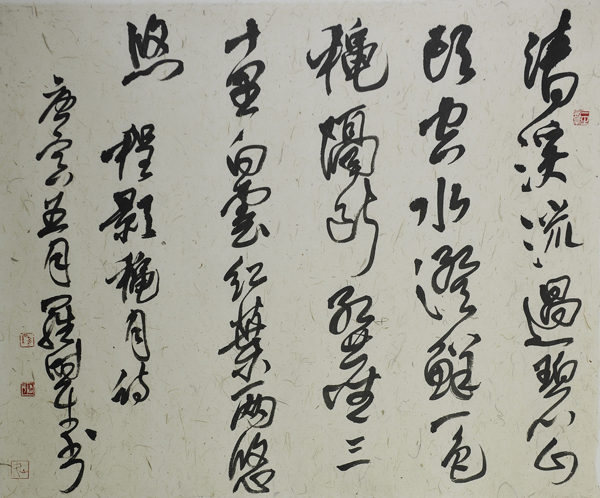 清溪流過碧山
頭空水澄鮮一色
穐隔斷紅塵三
十里白雲紅葉兩悠
悠 程顥穐月詩
庚寅五月羅書